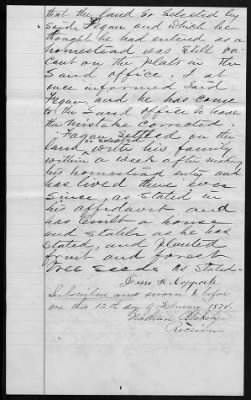 that the land so selected by
said Fagan and which he
thought he had entered as a
homestead was still va-
cant on the plats in the
Land office, I at
once informed said
Fagan and he has come
to the Land office to have
the mistake corrected.
Fagan settled on the
land so selected with his family
within a week after making
his homestead entry and
has lived there ever
since, as stated in
his affidavit and
has built a house
and stables as he has
stated, and planted
fruit and forest
tree seeds as stated
Coppock
Subscribed and sworn to before
me this 12th day of February 1878.
Nathan Blakely
Receiver